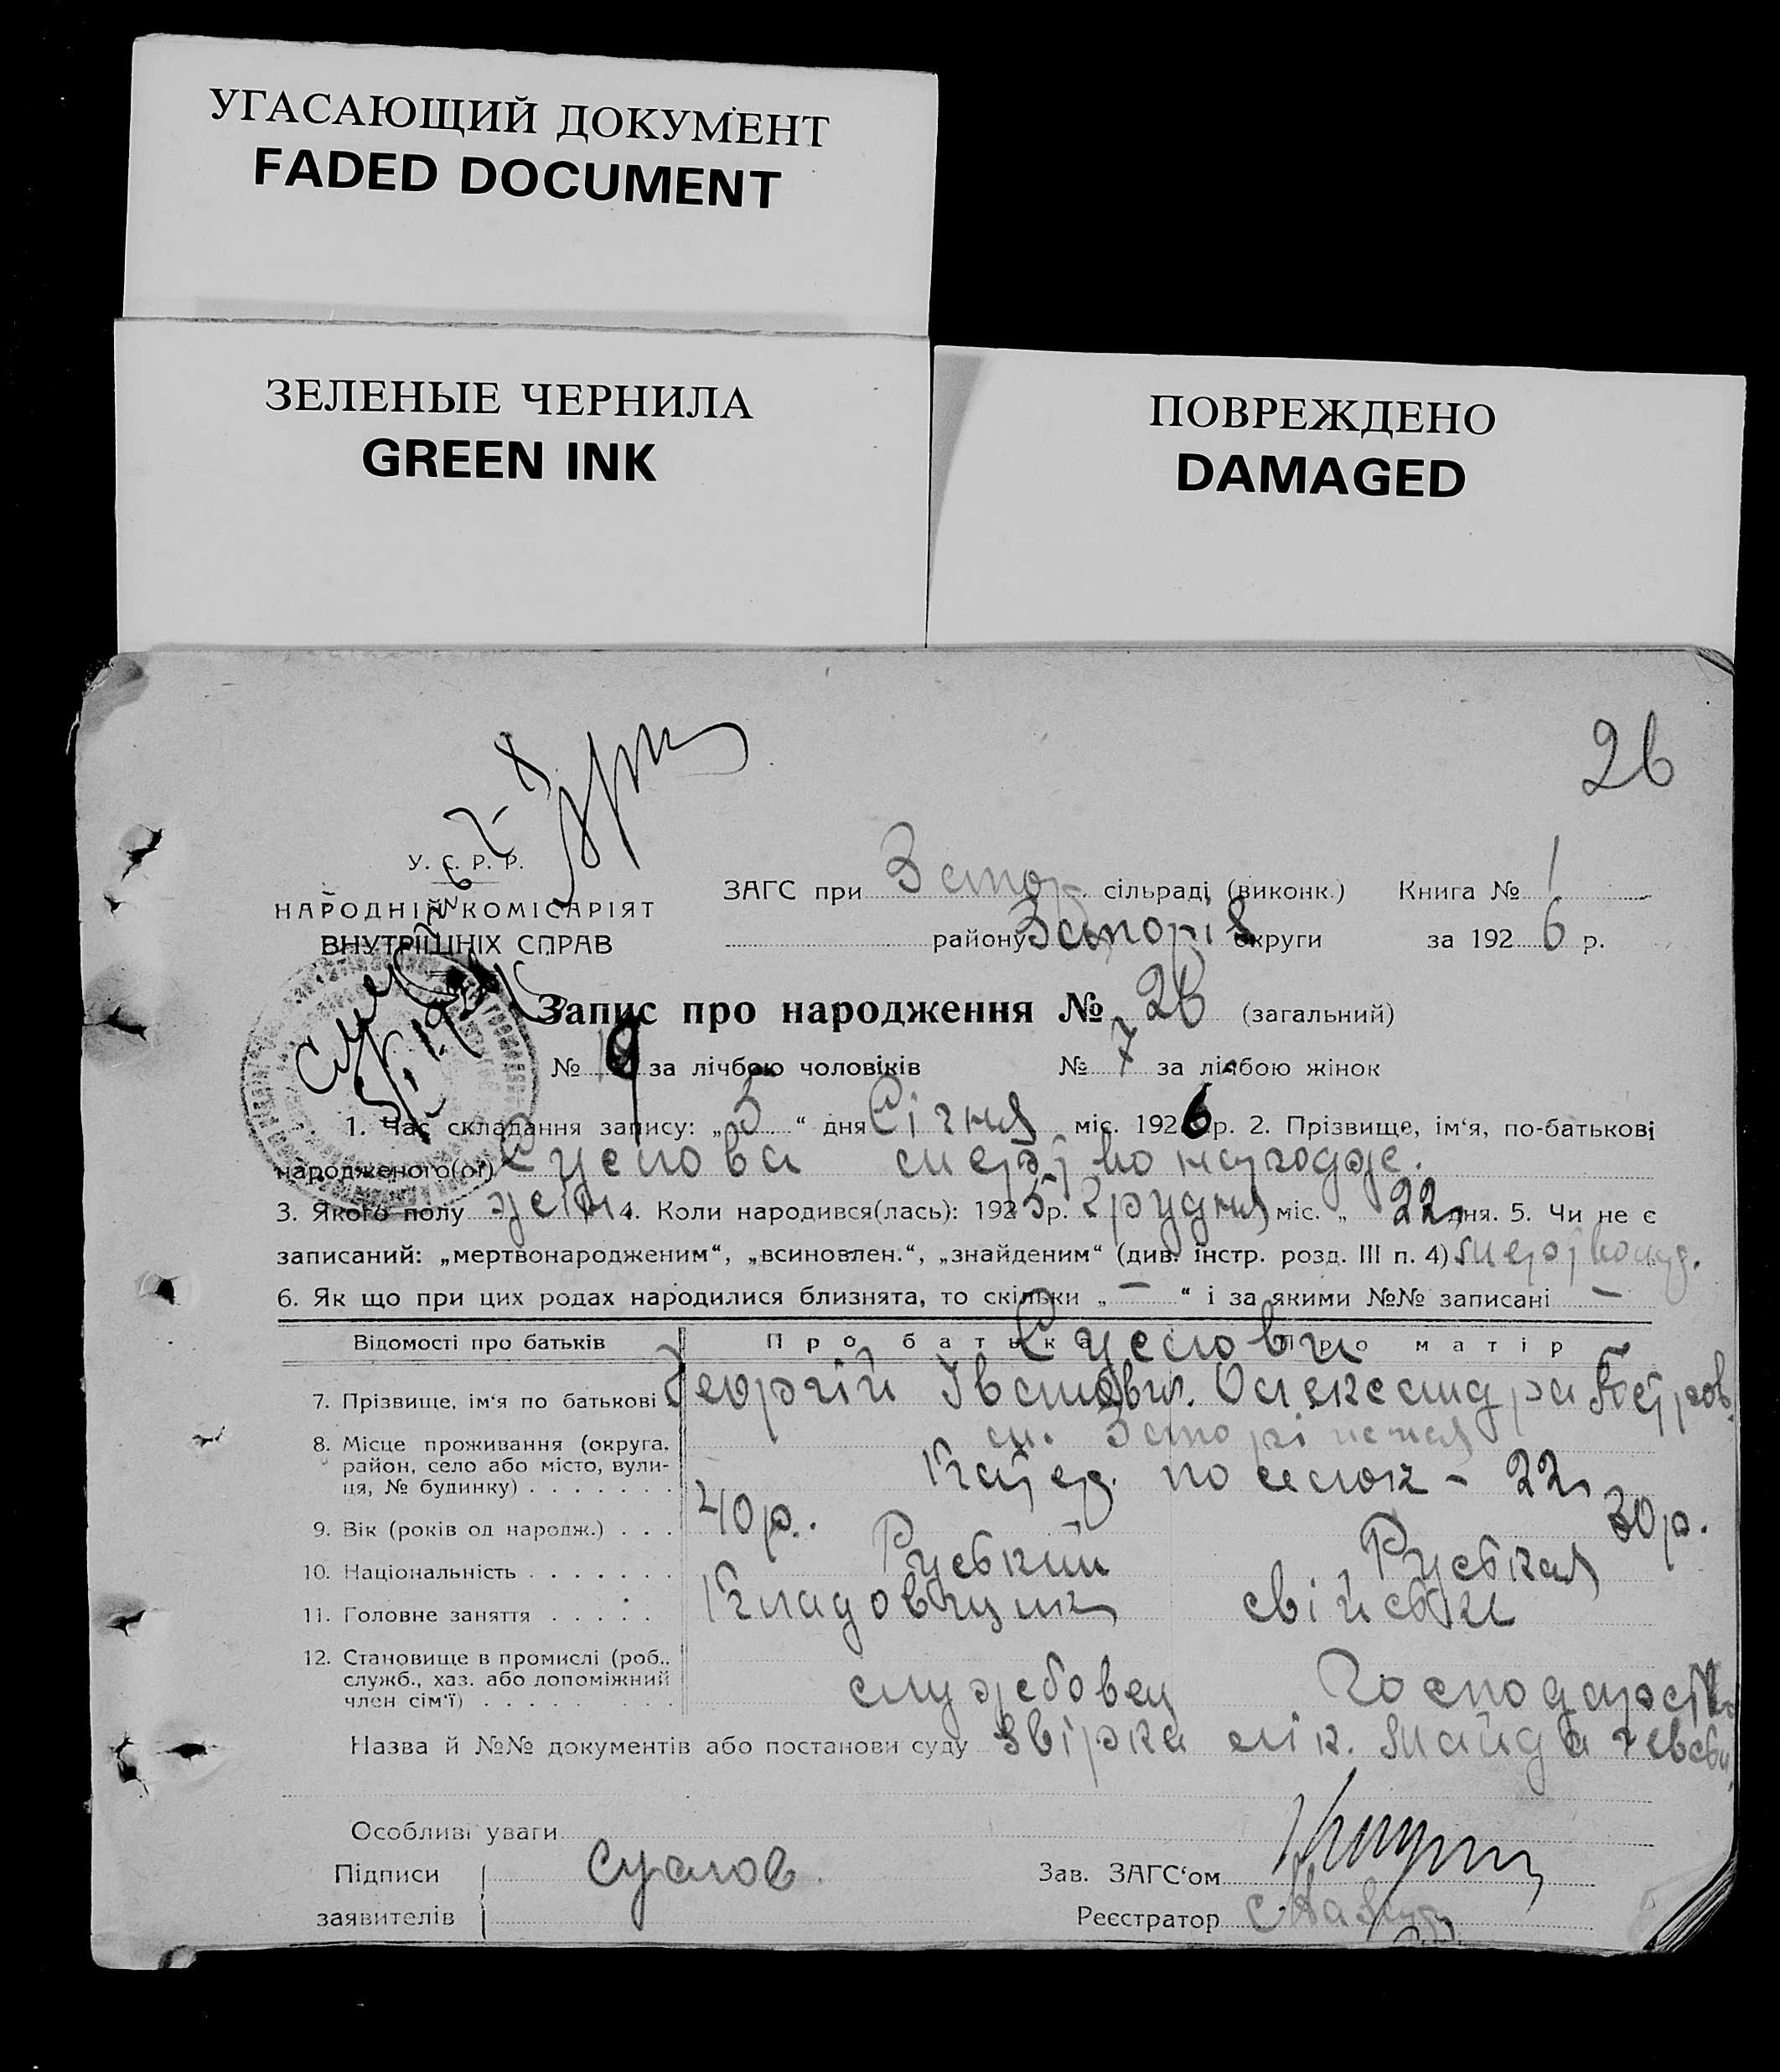 УГАСАЮЩИЙ ДОКУМЕНТ
FADED DOCUMENT
ЗЕЛЕНЫЕ ЧЕРНИЛА
GREEN INK
ПОВРЕЖДЕНО
DAMAGED
26
У. С. Р. Р.
НАРОДНІЙ КОМІСАРІЯТ
ВНУТРІШНІХ СПРАВ
ЗАГС при сільраді (виконк.) Книга № 1
району Запоріз округи за 1926 р.
Запис про народження № 26 (загальний)
№ 19 за лічбою чоловіків № 7 за лічбою жінок
1. Час складання запису: „5“ дня Січня міс. 1926 р. 2. Прізвище, ім‘я, по-батькові
народженого(ої) Суслова
3. Якого полу жін. 4. Коли народився(лась): 1925р. Грудня міс. „ 22 дня. 5. Чи не є
записаний: „мертвонародженим“, „всиновлен.“, „знайденим“ (див. інстр. розд. III п. 4)
6. Як що при цих родах народилися близнята, то скільки „ — “ і за якими №№ записані —
Відомості про батьків Про батька Про матір
Суслови
7. Прізвище, ім‘я по батькові Георгій Іванович. Олександра Петров.
8. Місце проживання (округа, район, село або місто, вулиця, № будинку) . . . . . . . посьолок - 22
9. Вік (років од народж.) . . . 40 р. 30 р.
10. Національність . . . . . . . Руський Руская
11. Головне заняття . . . . . Кладовщик свійське
12. Становище в промислі (роб., служб., хаз. або допоміжний член сім‘ї) . . . . . . . . службовец господарство
Назва й №№ документів або постанови суду звірка лік.
Особливі уваги
Підписи Суслов Зав. ЗАГС‘ом
заявителів Реєстратор